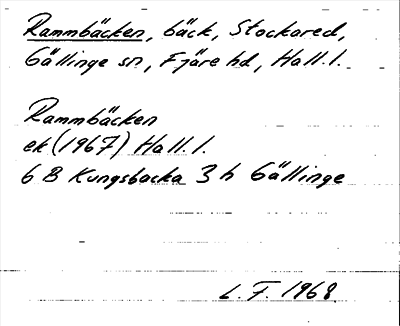 Rammbäcken, bäck, Stockared,
Gällinge sn, Fjäre hd, Hall. l.
Rammbäcken
ek (1967) Hall. l.
6 B Kungsbacka 3 h Gällinge
L. F. 1968